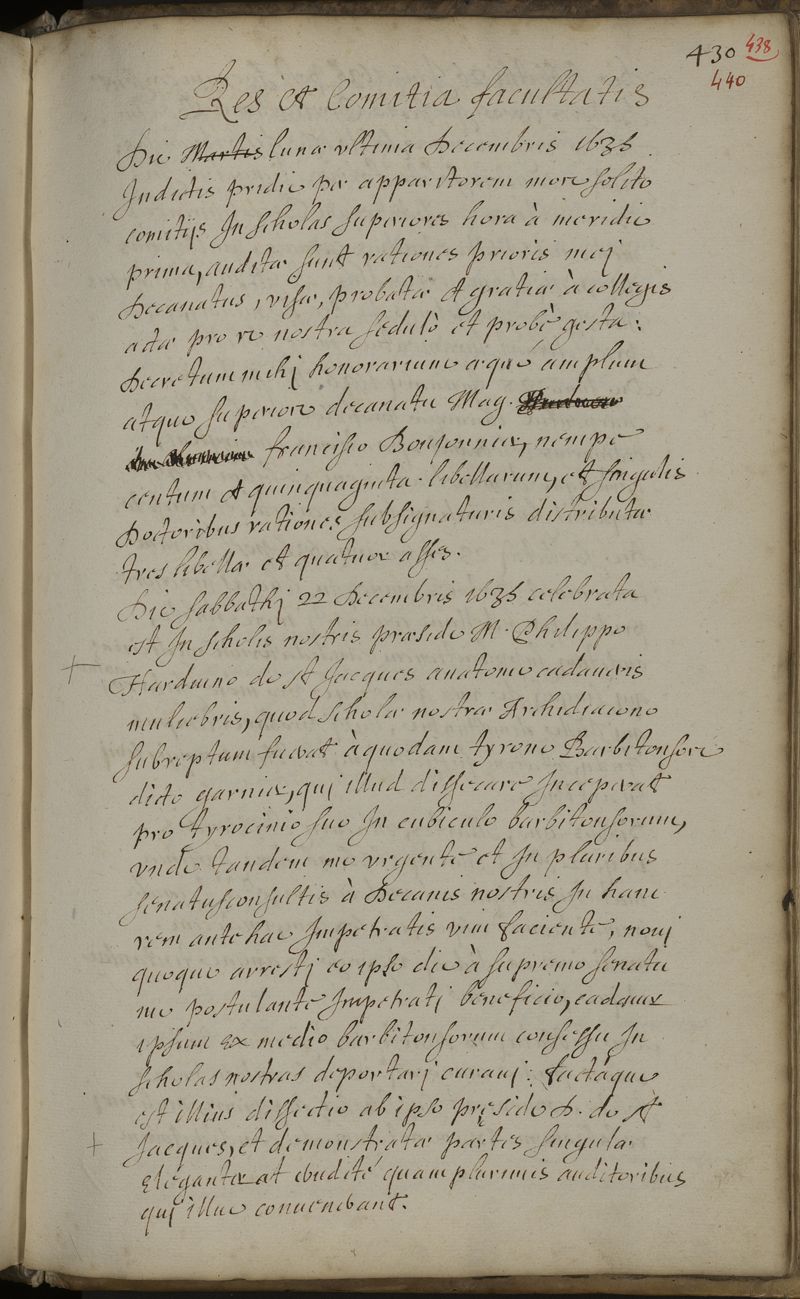 430 438
440
Res et Comitia facultatis
Die Martis lunæ vltima Decembris 1635
Indictis pridie per apparitorem more solito
comitijs In scholas superiores hora à meridie
prima, auditæ sunt rationes prioris mej
Decanatus, visæ, probatæ et gratiæ à collegis
actæ pro re nostra sedulò et probè gesta:
Decretum mihj honorarium æque amplum
atque superiore decanatu Mag.
francisco Boujonnier, nempe
centum et quinquaginta libellarum, et singulis
Doctoribus rationes subsignaturis distributæ
tres libellæ et quatuor asses.
Die sabbathj 22 Decembris 1635 celebrata
est In scholis nostris præside M. Philippo
Harduino de St Jacques anatome cadaueris
muliebris, quod scholæ nostræ Archidiacono
subreptum fuerat à quodam tyrone Barbitonsore
dicto garnier, quj illud dissecare Inceperat
pro tyrocinio suo In cubiculo barbitonsorum,
vnde tandem me vrgente et In pluribus
senatusconsultis à Decanis nostris In hanc
rem ante hac Impetratis vim faciente, nouj
quoque arrestj eo ipso die à supremo senatu
me postulante Impetratj beneficio, cadauer
ipsum ex medio barbitonsorum consessu In
scholas nostras deportarj curauj: factáque
est illius dissectio ab ipso preside D. de St
Jacques, et demonstratæ partes singulæ
eleganter at erudite quam plurimis auditoribus
quj illuc conuenerant.